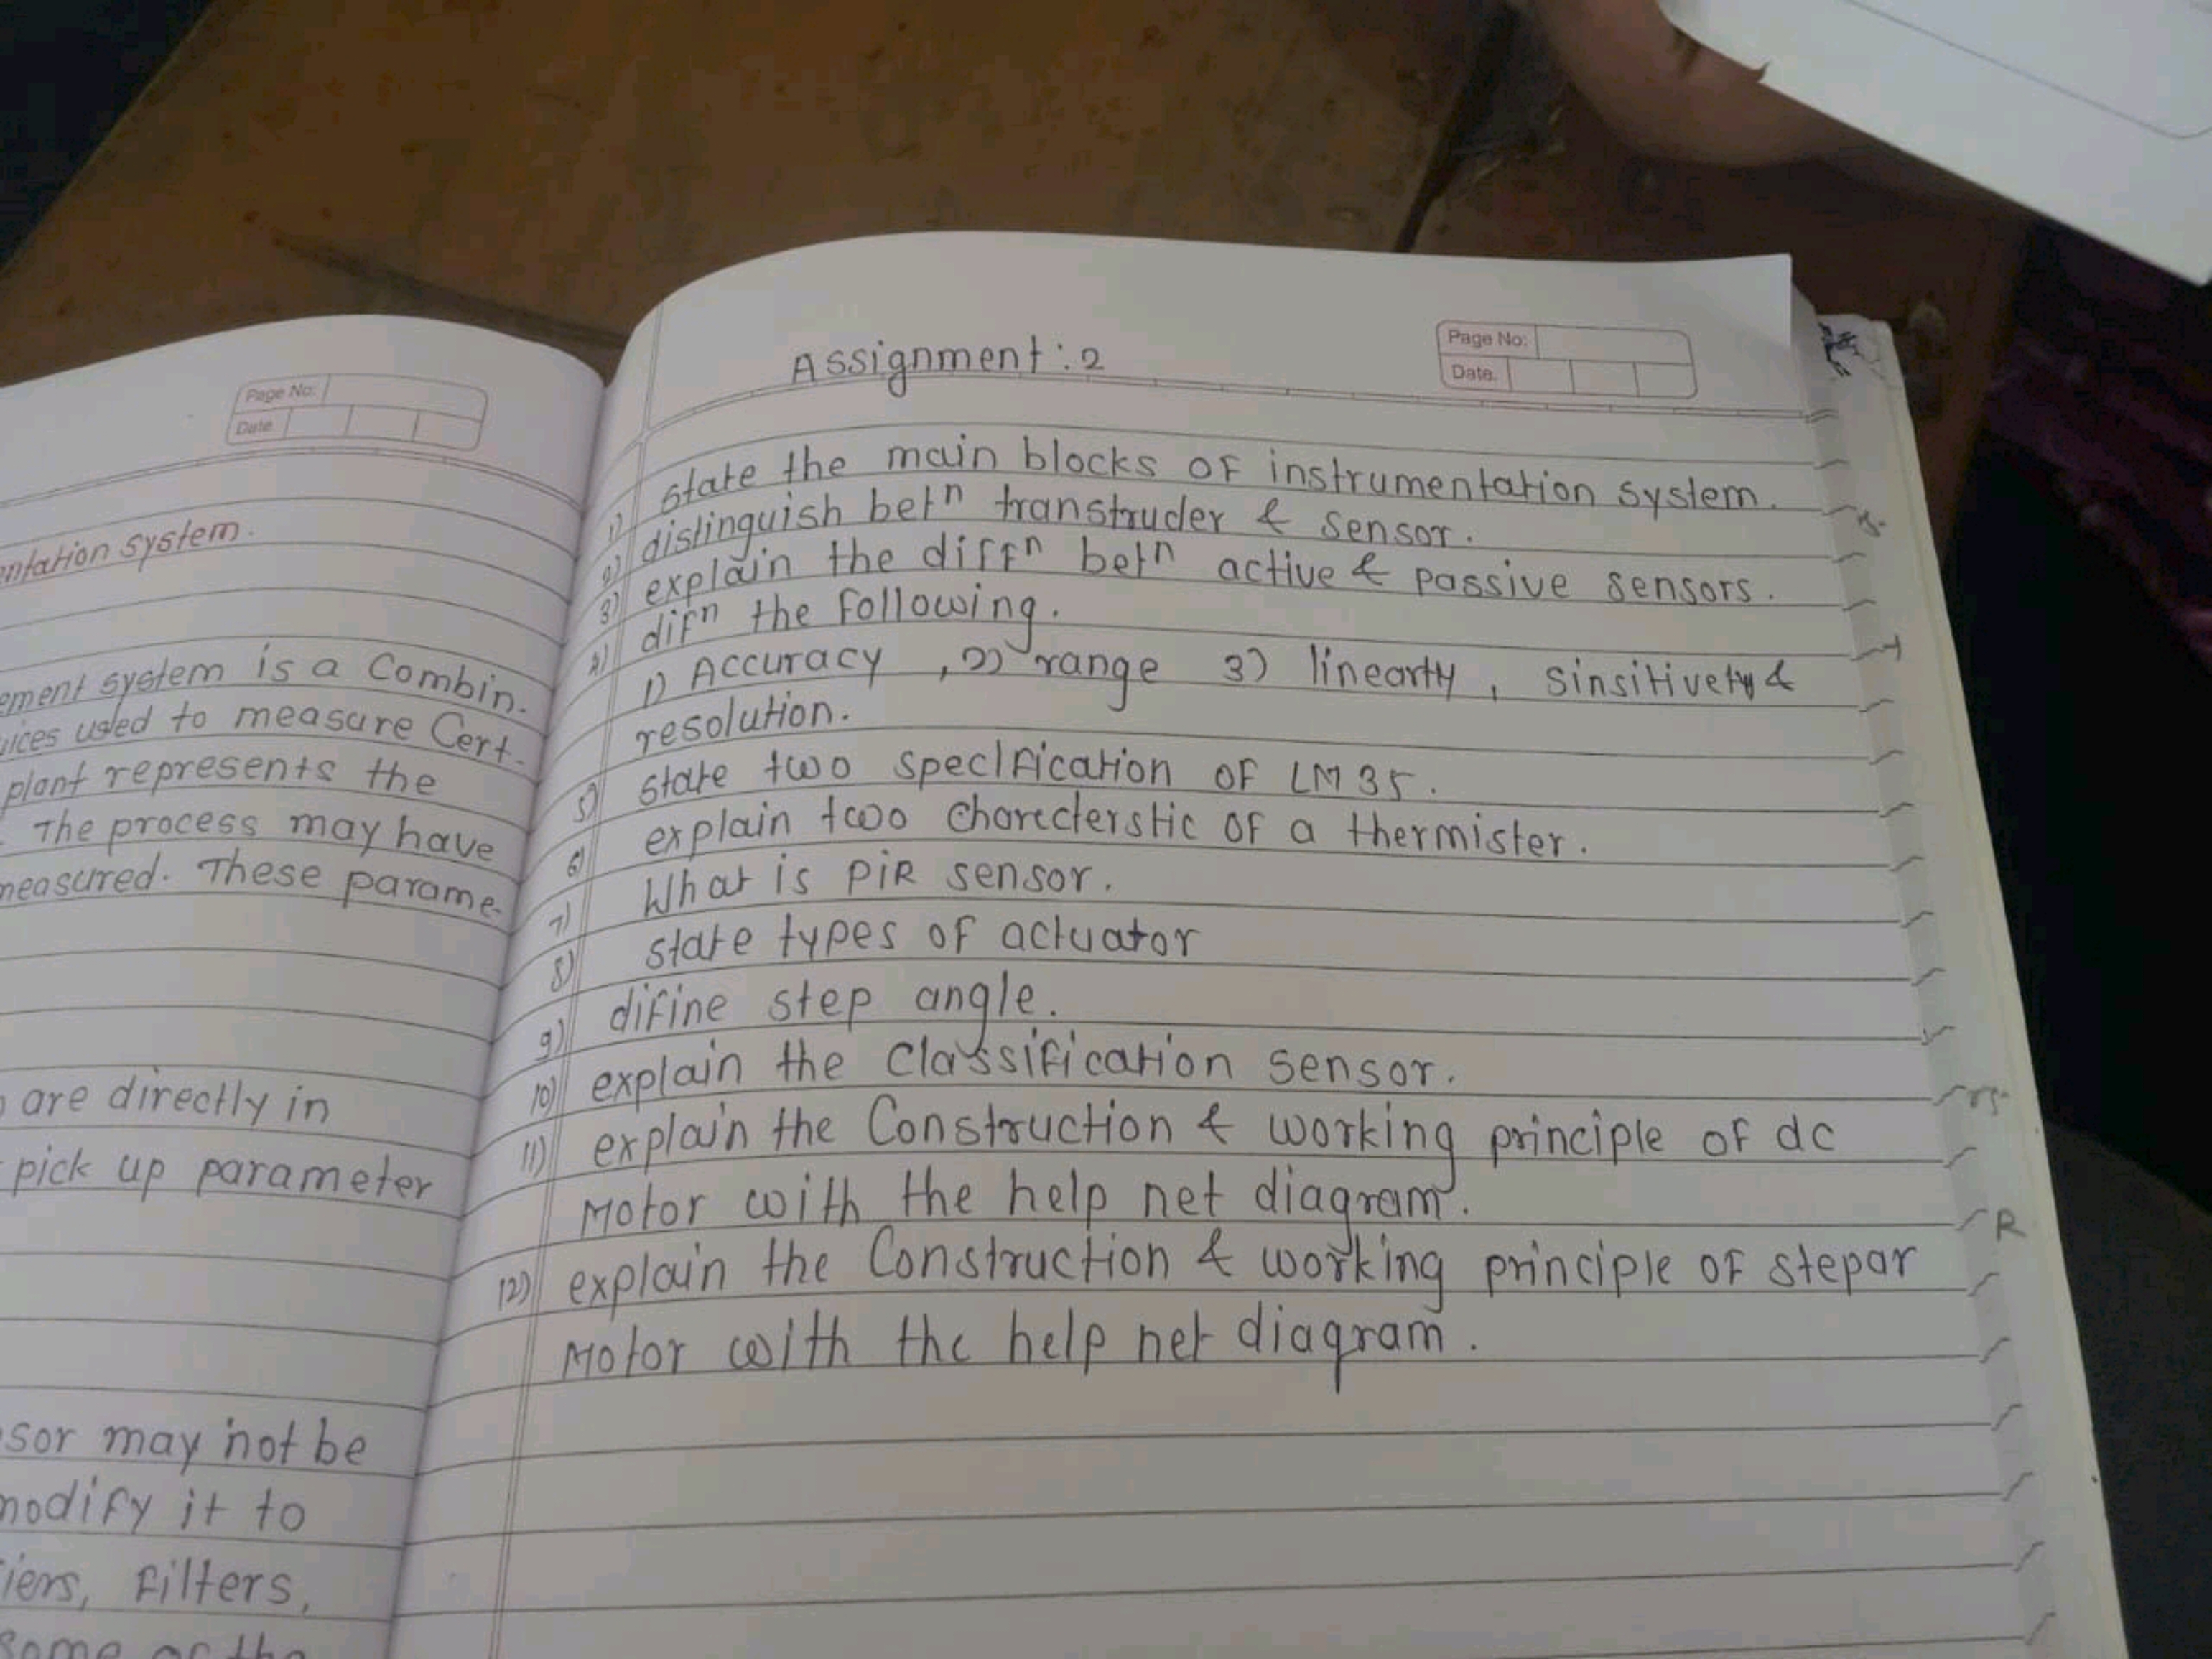 Page No:
Date
entation system.
ement system is a Combin.
vices used to measure Cert.
plant represents the
The process may have
measured. These parame-
are directly in
pick up parameter
sor may not be
modify it to
iers, Filters,
Some of the
Assignment : 2
Page No:
Date.
1) state the main blocks OF instrumentation system.
2) distinguish betn transtruder & sensor.
3) explain the diffn betn active & passive sensors.
4) difn the Following.
1) Accuracy , 2) range 3) linearty , Sinsitivety &
resolution.
5) state two specification OF LM 35.
6) explain two charecterstic OF a thermister.
7) What is PiR sensor.
8) state types OF actuator
9) difine step angle.
10) explain the Classification sensor.
11) explain the Construction & working principle OF dc
Motor with the help net diagram.
12) explain the Construction & working principle OF stepar
Motor with the help net diagram.
R